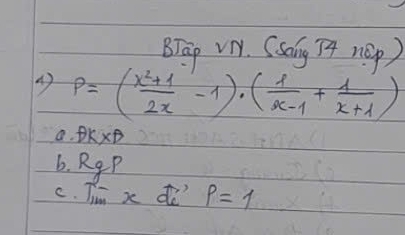 BTập VN. (Sáng T4 nộp)
1) P = (\frac{x²+1}{2x} - 1) . (\frac{1}{x-1} + \frac{1}{x+1})
a. ĐKXĐ
b. Rg P
c. Tìm x để P = 1